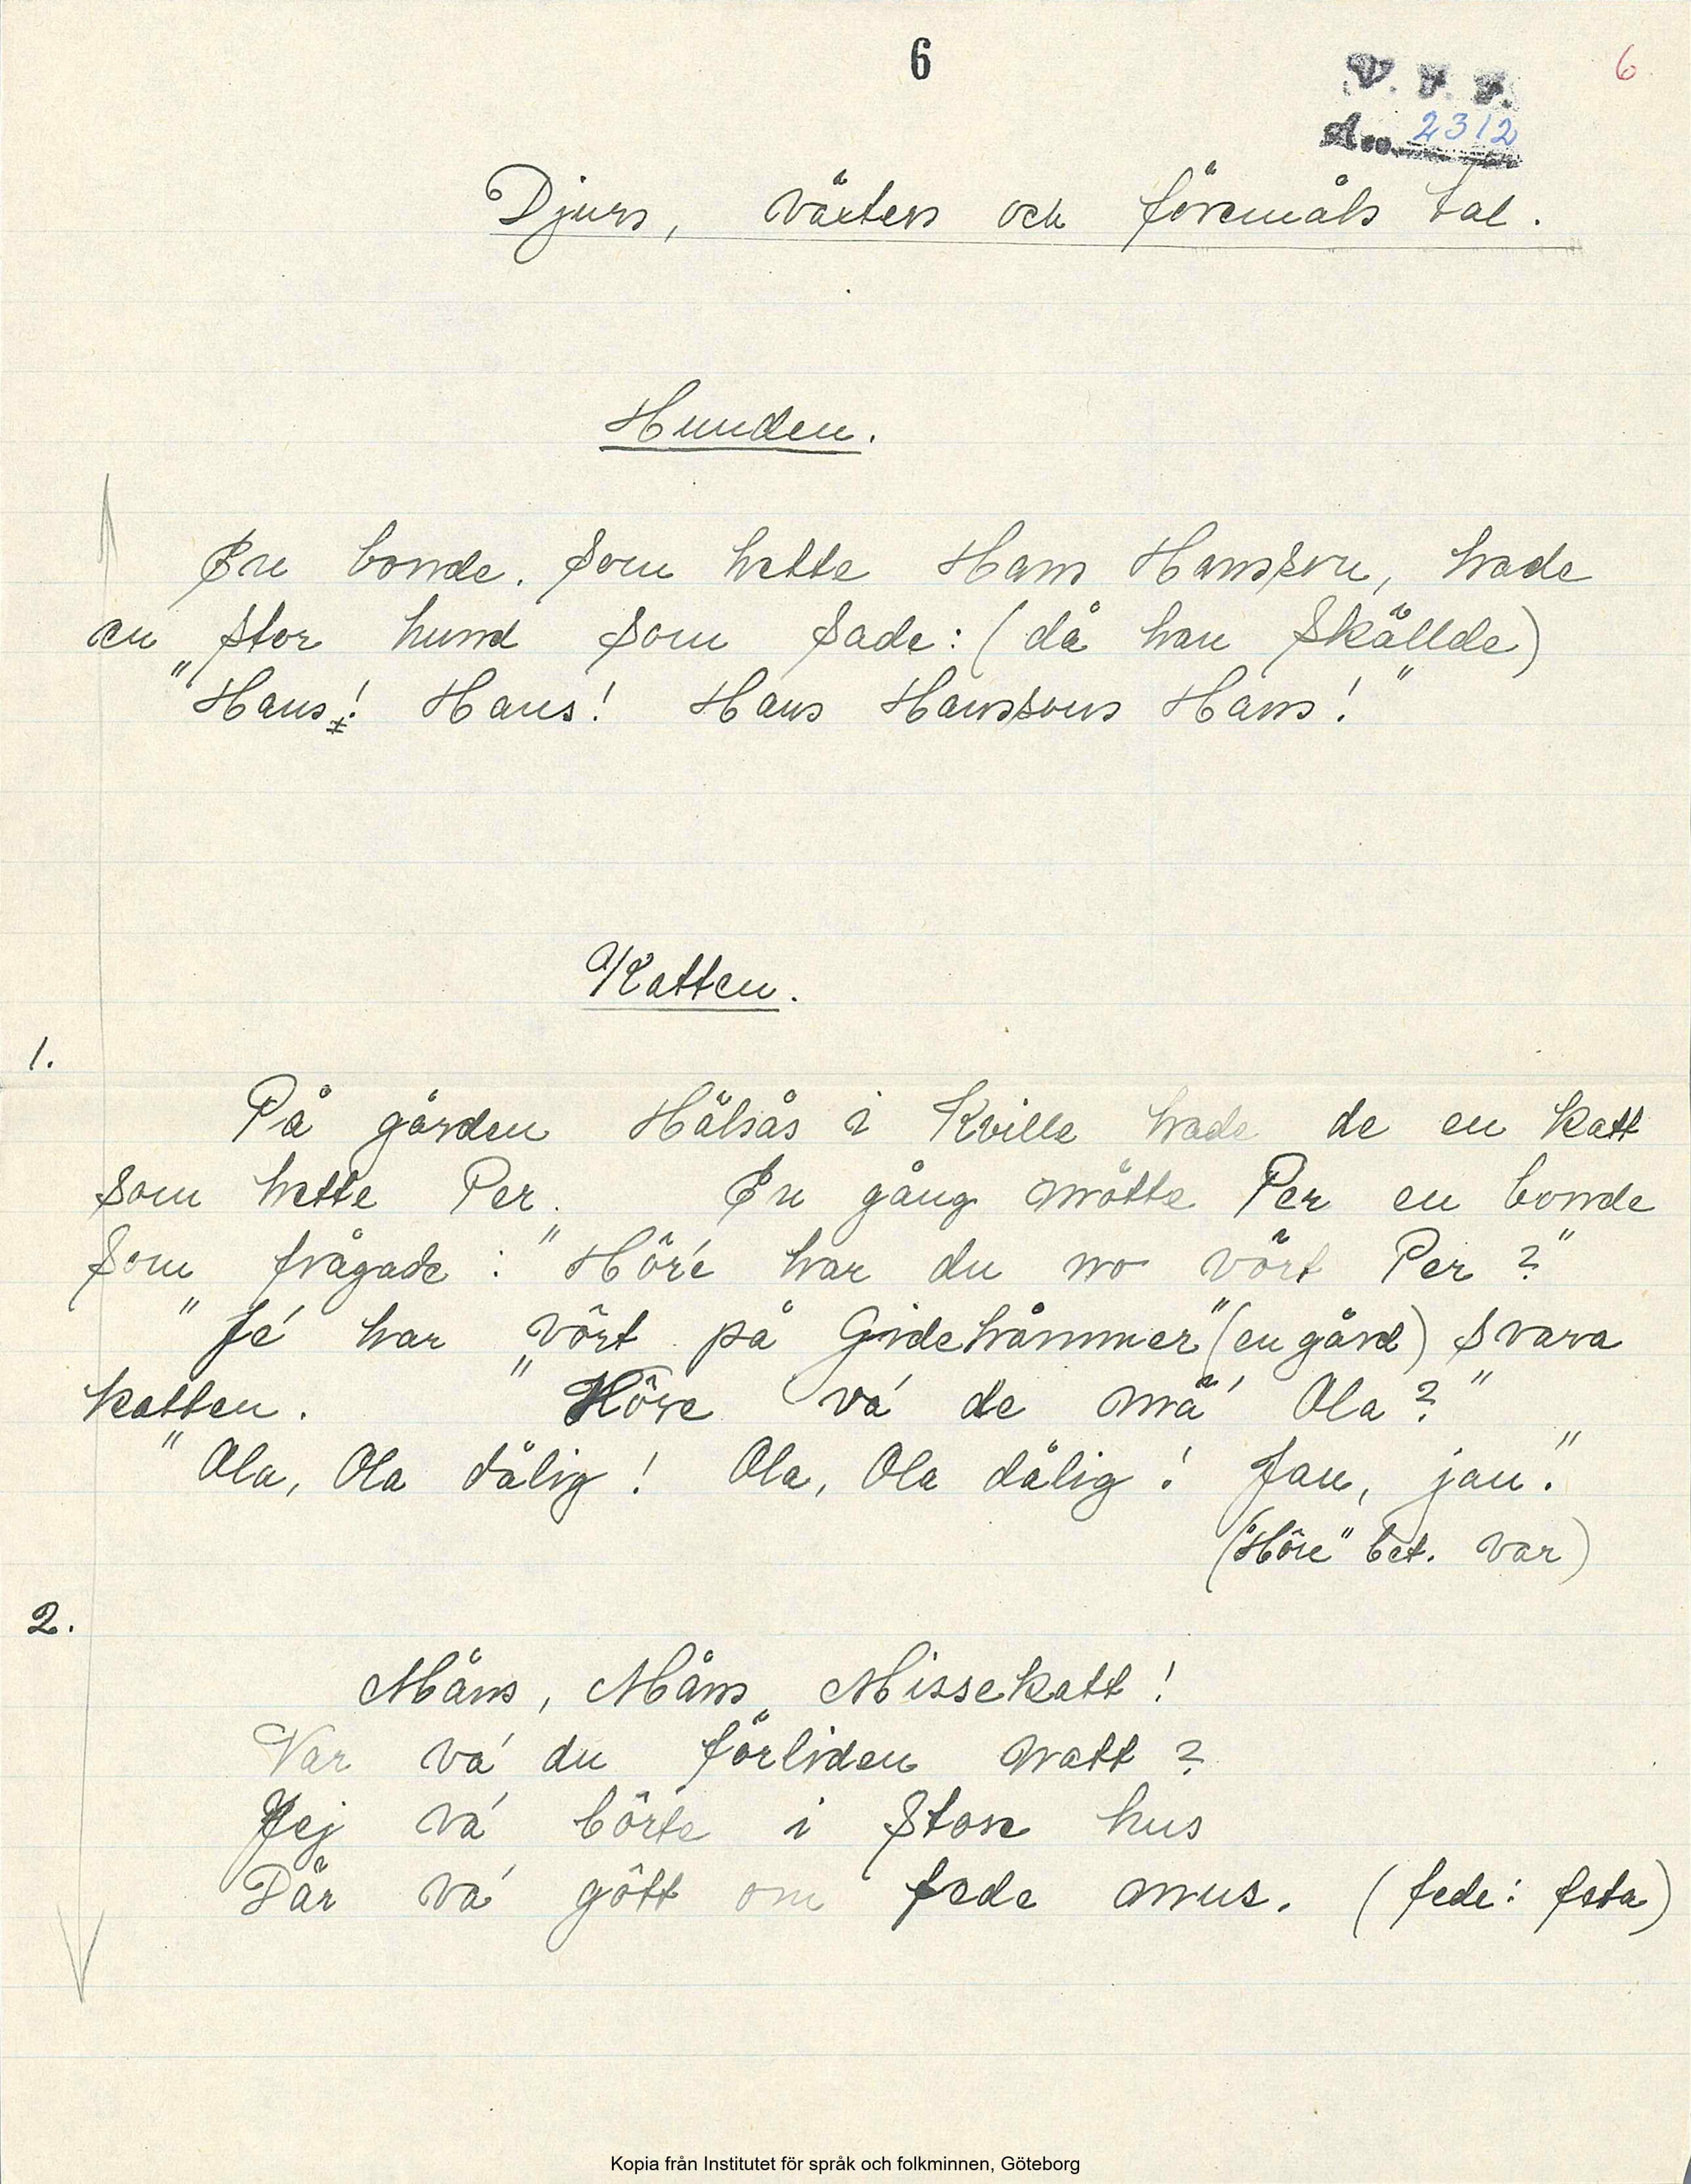 6
V. F. F.
Acc. 2312
6
Djurs, växters och föremåls tal.
Hunden.
En bonde. som hette Hans Hansson, hade
en stor hund som sade: (då han skällde)
"Hans! Hans! Hans Hanssons Hans!"
Katten.
1.
På gården Hälsås i Kville hade de en katt
som hette Per. En gång mötte Per en bonde
som frågade: "Hör'e har du no vôrt Per?"
"Je' har vôrt på Gidehåmmer" (en gård) svara
katten. "Hôre va' de mä' Ola?"
"Ola, Ola dålig! Ola, Ola dålig! Jau, jau."
("Hôre" bet. var)
2.
Måns, Måns Missekatt!
Var va' du förliden natt?
Jej va' bôrte i store hus
Där va' gôtt om fede mus. (fede: feta)
Kopia från Institutet för språk och folkminnen, Göteborg